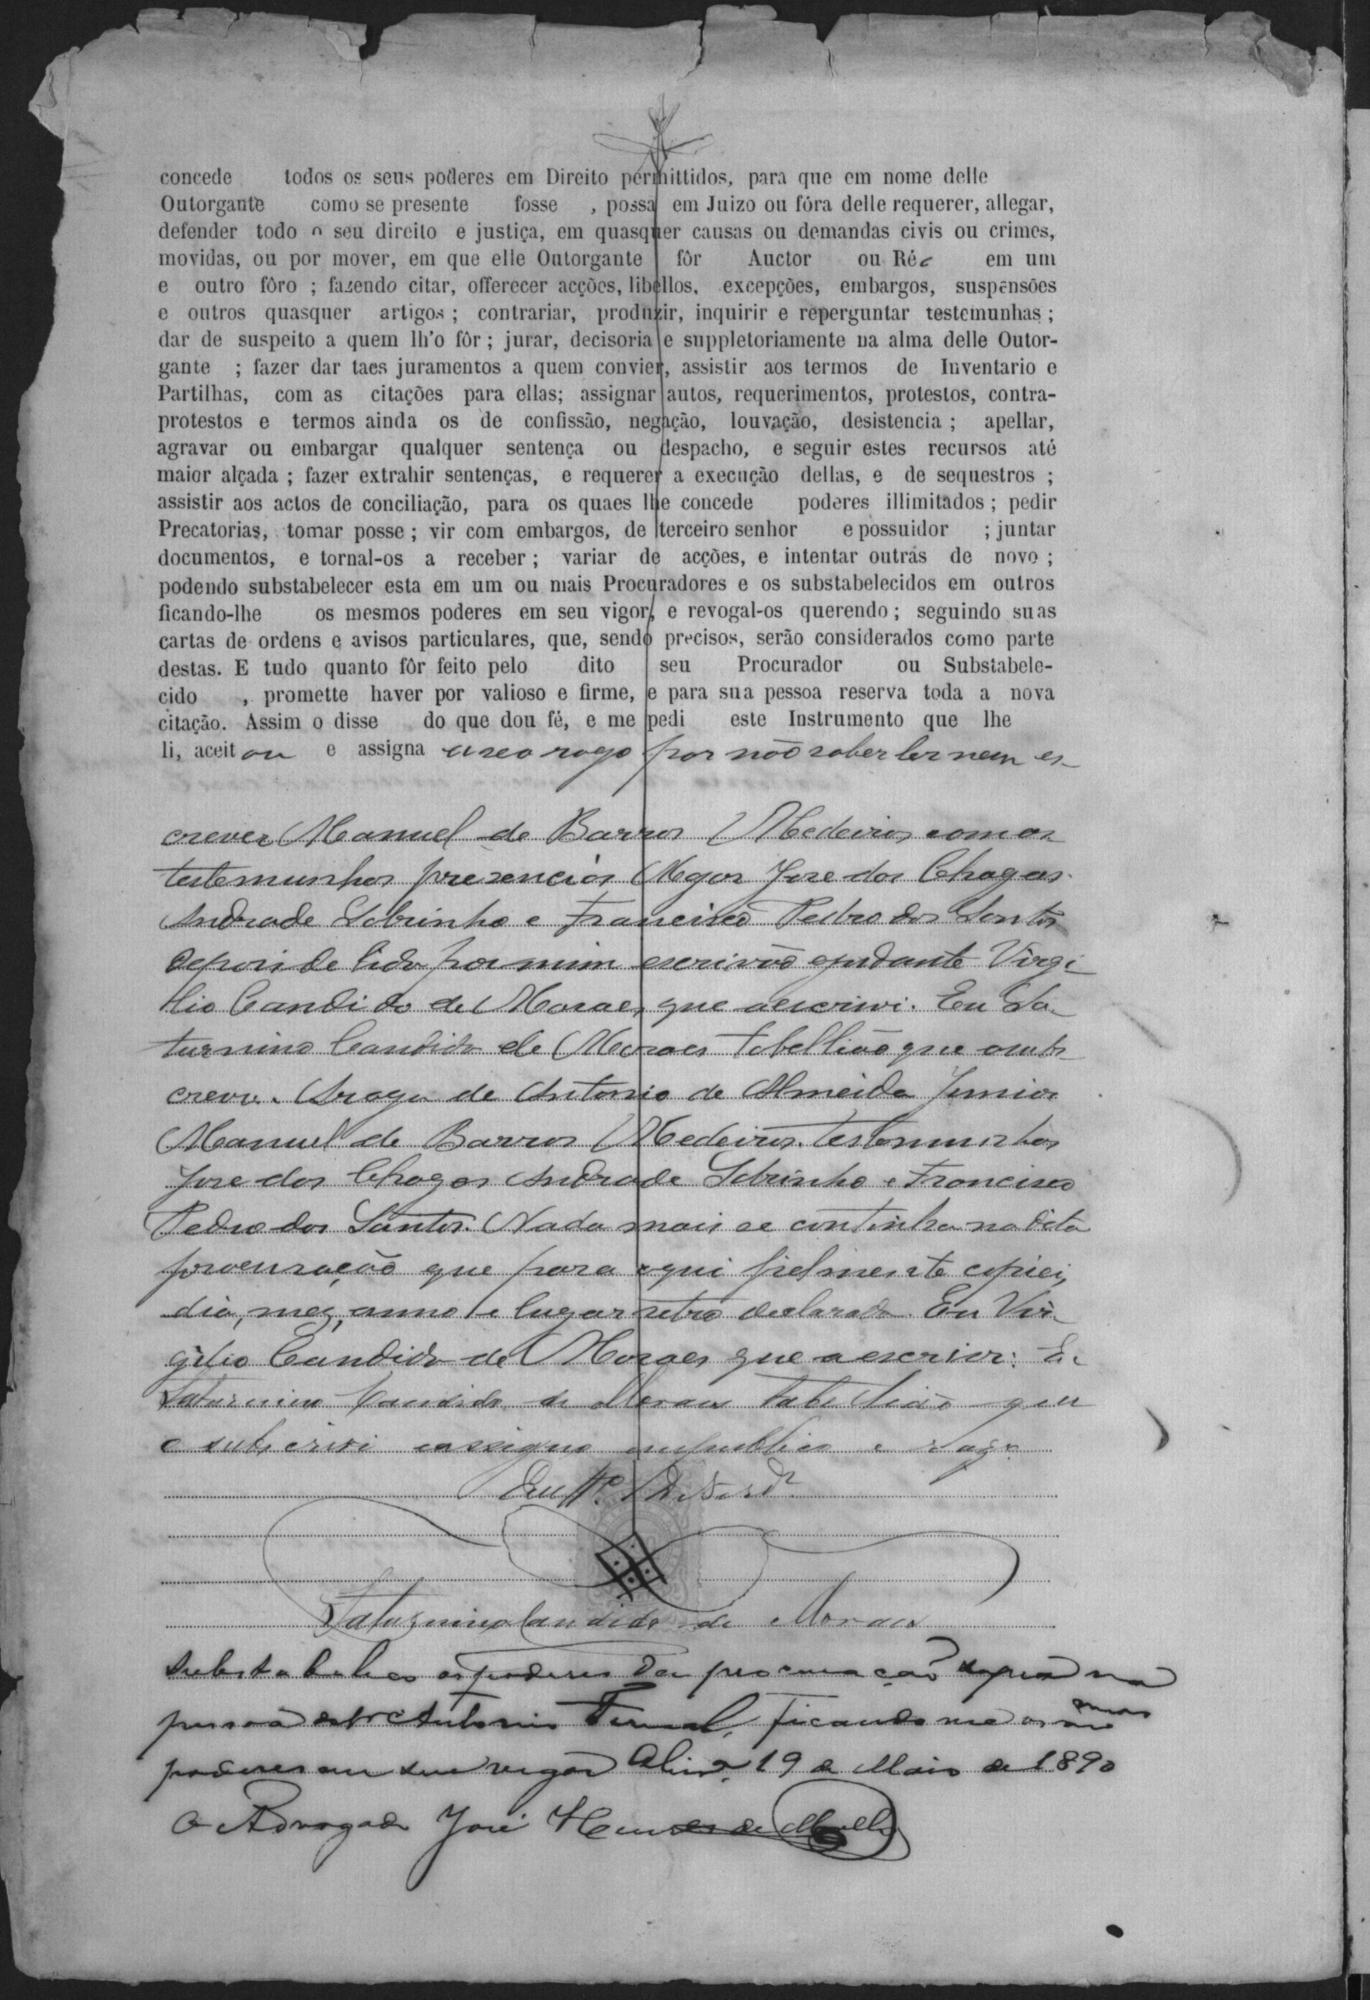 concede todos os seus poderes em Direito permittidos, para que em nome delle
Outorgante como se presente fosse , possa em Juizo ou fóra delle requerer, allegar,
defender todo o seu direito e justiça, em quasquer causas ou demandas civis ou crimes,
movidas, ou por mover, em que elle Outorgante fôr Auctor ou Réo em um
e outro fôro ; fazendo citar, offerecer acções, libellos, excepções, embargos, suspensões
e outros quasquer artigos ; contrariar, produzir, inquirir e reperguntar testemunhas ;
dar de suspeito a quem lh'o fôr ; jurar, decisoria e suppletoriamente na alma delle Outor-
gante ; fazer dar taes juramentos a quem convier, assistir aos termos de Inventario e
Partilhas, com as citações para ellas; assignar autos, requerimentos, protestos, contra-
protestos e termos ainda os de confissão, negação, louvação, desistencia ; apellar,
agravar ou embargar qualquer sentença ou despacho, e seguir estes recursos até
maior alçada ; fazer extrahir sentenças, e requerer a execução dellas, e de sequestros ;
assistir aos actos de conciliação, para os quaes lhe concede poderes illimitados ; pedir
Precatorias, tomar posse ; vir com embargos, de terceiro senhor e possuidor ; juntar
documentos, e tornal-os a receber ; variar de acções, e intentar outras de novo ;
podendo substabelecer esta em um ou mais Procuradores e os substabelecidos em outros
ficando-lhe os mesmos poderes em seu vigor, e revogal-os querendo ; seguindo suas
cartas de ordens e avisos particulares, que, sendo precisos, serão considerados como parte
destas. E tudo quanto fôr feito pelo dito seu Procurador ou Substabele-
cido , promette haver por valioso e firme, e para sua pessoa reserva toda a nova
citação. Assim o disse do que dou fé, e me pedi este Instrumento que lhe
li, aceitou e assigna a seo rogo por não saber ler nem es-
crever Manuel de Barros Medeiros com as
testemunhas presenciaes José das Chagas
Andrade Sobrinho e Francisco Pedro dos Santos
depois de lido por mim escrivão ajudante Virgi-
lio Candido de Moraes que a escrivi. Eu Sa-
turnino Candido de Moraes tabellião que o subs
crevi. A rogo de Antonio de Almeida Junior
Manuel de Barros Medeiros. Testemunhas
José das Chagas Andrade Sobrinho e Francisco
Pedro dos Santos. Nada mais se continha na dita
procuração que para aqui fielmente copiei,
dia, mez, anno e lugar retro declarado. Eu Vir-
gilio Candido de Moraes que a escrivi. Eu
Saturnino Candido de Moraes tabellião que
o subscrivi e assigno em publico e raso
Em
Saturnino Candido de Moraes
Substabeleço os poderes da procuração supra na
pessoa de Antonio ficando me os mesmos
poderes em seu vigor 19 de Maio de 1890
O Advogado José